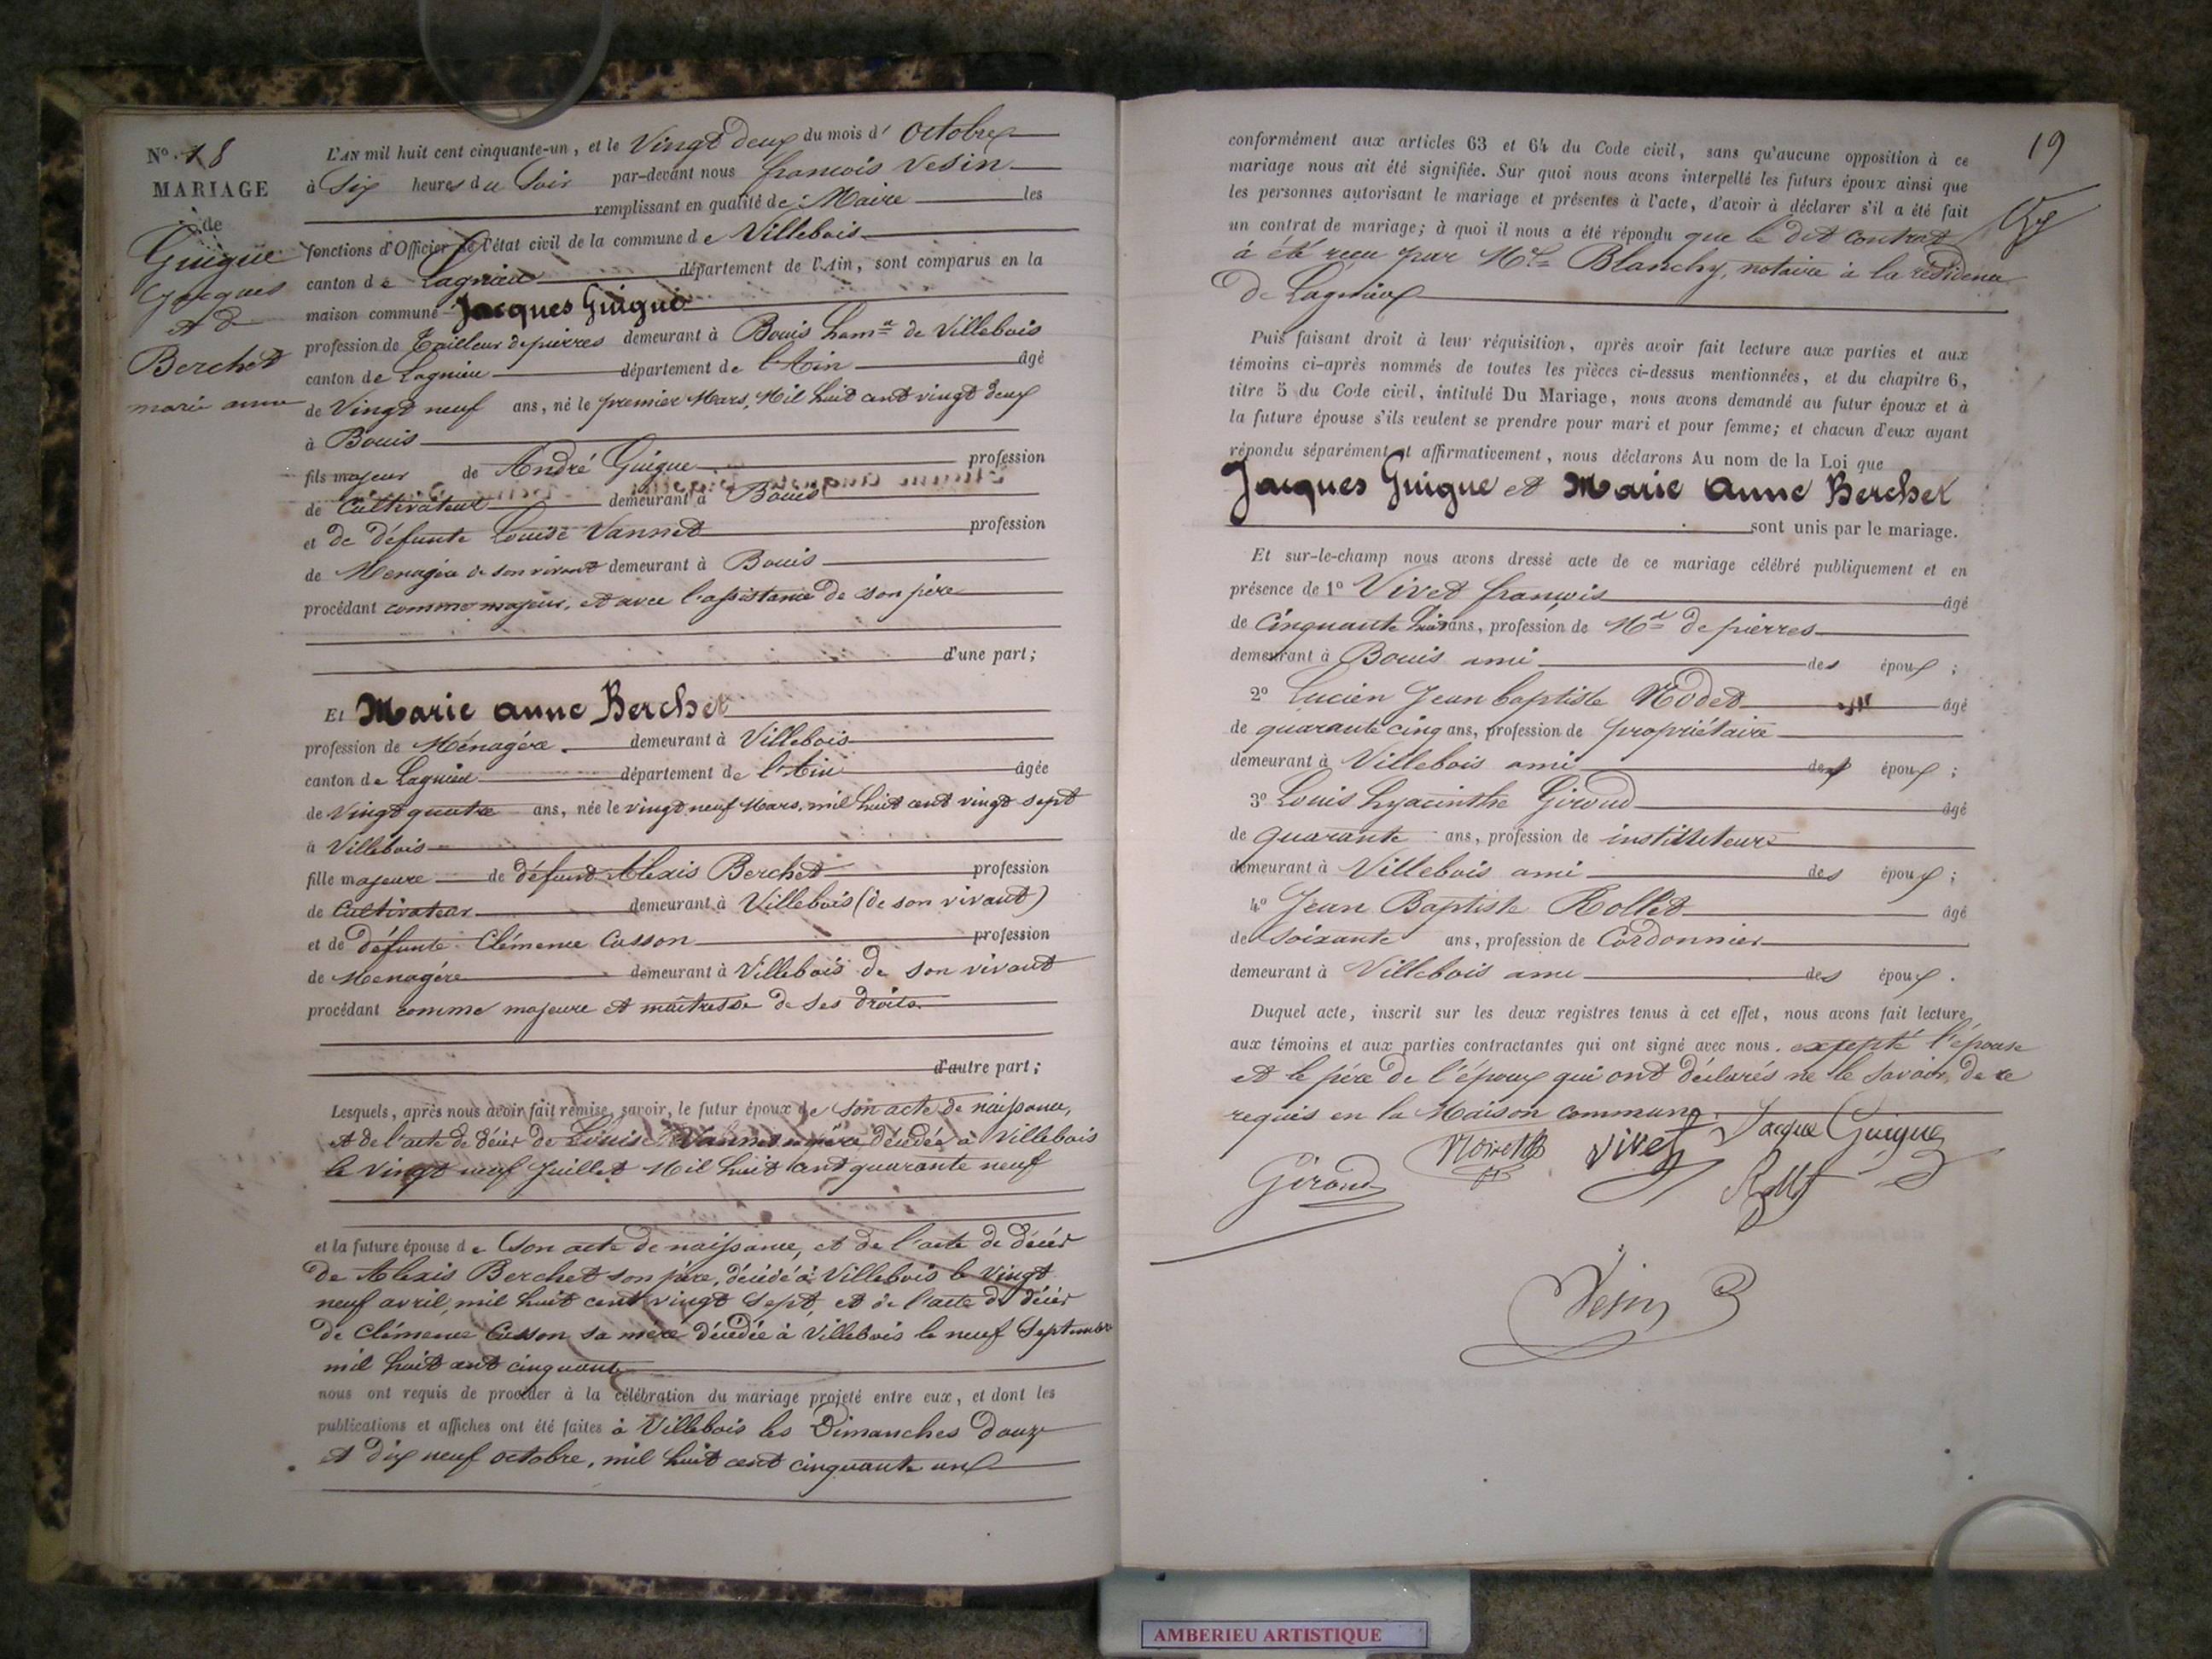 No. 18
MARIAGE
de
Guigue
Jacques
et de
Berchet
marie anne
L'AN mil huit cent cinquante-un, et le Vingt deux du mois d' Octobre
à Six heures du Soir par-devant nous françois Vesin
remplissant en qualité de Maire les
fonctions d'Officier de l'état civil de la commune de Villebois
canton de Lagnieu département de l'Ain, sont comparus en la
maison commune Jacques Guigue
profession de Tailleur de pierres demeurant à Bouis ham.au de Villebois
canton de Lagnieu département de l'Ain âgé
de Vingt neuf ans, né le premier Mars, Mil huit cent vingt deux
à Bouis
fils majeur de André Guigue profession
de Cultivateur demeurant à Bouis
et de défunte Louise Vannet profession
de Menagère de son vivant demeurant à Bouis
procédant comme majeur, et avec l'assistance de son père
d'une part;
Et Marie anne Berchet
profession de Ménagère demeurant à Villebois
canton de Lagnieu département de l'Ain âgée
de Vingt quatre ans, née le vingt neuf Mars, mil huit cent vingt sept
à Villebois
fille majeure de défunt Alexis Berchet profession
de Cultivateur demeurant à Villebois (de son vivant)
et de défunte Clémence Casson profession
de Menagère demeurant à Villebois de son vivant
procédant comme majeure et maîtresse de ses droits
d'autre part;
Lesquels, après nous avoir fait remise, savoir, le futur époux de son acte de naissance,
et de l'acte de décès de Louise Vannet sa mère décédée à Villebois
le Vingt neuf Juillet Mil huit cent quarante neuf
et la future épouse de Son acte de naissance, et de l'acte de décès
de Alexis Berchet son père, décédé à Villebois le Vingt
neuf avril, mil huit cent vingt sept, et de l'acte de décès
de Clémence Casson sa mère décédée à Villebois le neuf Septembre
mil huit cent cinquante
nous ont requis de procéder à la célébration du mariage projeté entre eux, et dont les
publications et affiches ont été faites à Villebois les Dimanches douze
et dix neuf octobre, mil huit cent cinquante un
19
conformément aux articles 63 et 64 du Code civil, sans qu'aucune opposition à ce
mariage nous ait été signifiée. Sur quoi nous avons interpellé les futurs époux ainsi que
les personnes autorisant le mariage et présentes à l'acte, d'avoir à déclarer s'il a été fait
un contrat de mariage; à quoi il nous a été répondu que le dit contrat
à été reçu par Me Blanchy, notaire à la résidence
De Lagnieu
Puis faisant droit à leur réquisition, après avoir fait lecture aux parties et aux
témoins ci-après nommés de toutes les pièces ci-dessus mentionnées, et du chapitre 6,
titre 5 du Code civil, intitulé Du Mariage, nous avons demandé au futur époux et à
la future épouse s'ils veulent se prendre pour mari et pour femme; et chacun d'eux ayant
répondu séparément et affirmativement, nous déclarons Au nom de la Loi que
Jacques Guigue et Marie Anne Berchet
sont unis par le mariage.
Et sur-le-champ nous avons dressé acte de ce mariage célébré publiquement et en
présence de 1º Vivet françois âgé
de Cinquante huit ans, profession de Md de pierres
demeurant à Bouis ami des époux;
2º Lucien Jean baptiste Nodet âgé
de quarante cinq ans, profession de propriétaire
demeurant à Villebois ami des époux;
3º Louis hyacinthe Giroud âgé
de quarante ans, profession de instituteur
demeurant à Villebois ami des époux;
4º Jean Baptiste Rollet âgé
de Soixante ans, profession de Cordonnier
demeurant à Villebois ami des époux.
Duquel acte, inscrit sur les deux registres tenus à cet effet, nous avons fait lecture
aux témoins et aux parties contractantes qui ont signé avec nous. excepté l'épouse
et le père de l'époux qui ont déclarés ne le savoir, de ce
requis en la Maison commune.
Vivet Jacque Guigue
Giroud Rollet
Vesin
AMBERIEU ARTISTIQUE